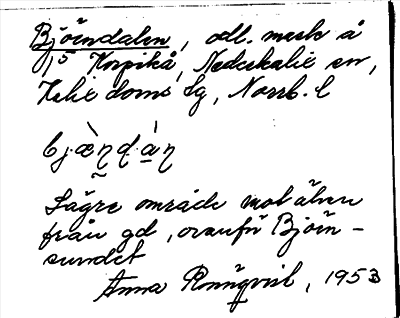 Björndalen, odl. mark å
1,5 Korpikå, Nederkalix sn,
Kalix doms lg, Norrb. l
bjæṇḍàṇ
Lägre område mot älven
från gd, ovanför Björn-
sundet
Anna Rönnqvist, 1953